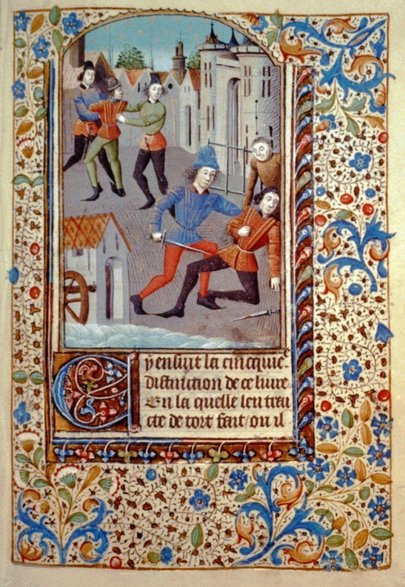 Cy ensuit la cincquie
distinction de ce liure
En la quelle len trai
cte de tort fait / ou il